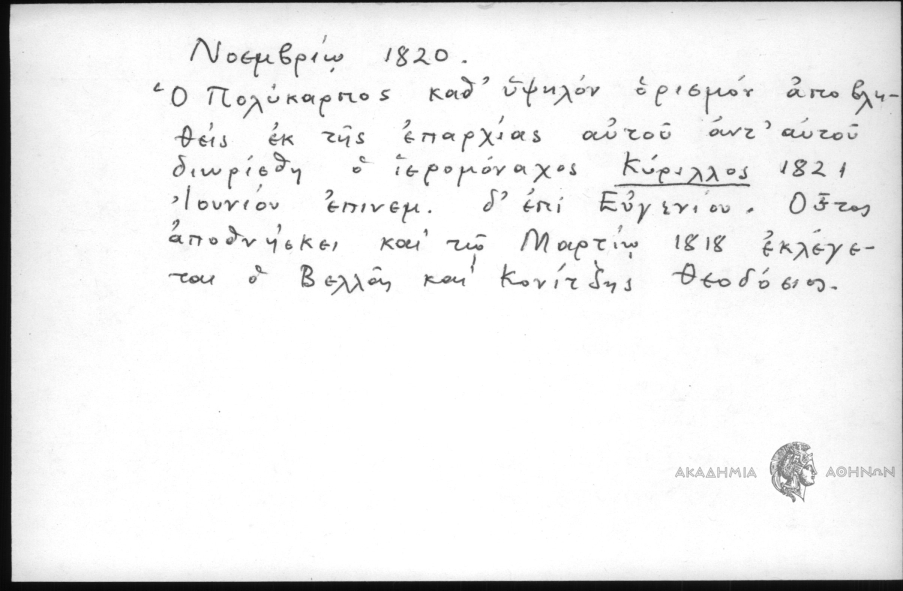 Νοεμβρίῳ 1820.
Ὁ Πολύκαρπος καθ' ὑψηλόν ὁρισμόν ἀποβλη-
θείς ἐκ τῆς ἐπαρχίας αὐτοῦ ἀντ' αὐτοῦ
διωρίσθη ὁ ἱερομόναχος Κύριλλος 1821
Ἰουνίου ἐπινεμ. δ' ἐπί Εὐγενίου. Οὗτος
ἀποθνήσκει καί τῷ Μαρτίῳ 1818 ἐκλέγε-
ται ὁ Βελλᾶς καί Κονίτσης Θεοδόσιος.
ΑΚΑΔΗΜΙΑ ΑΘΗΝΩΝ